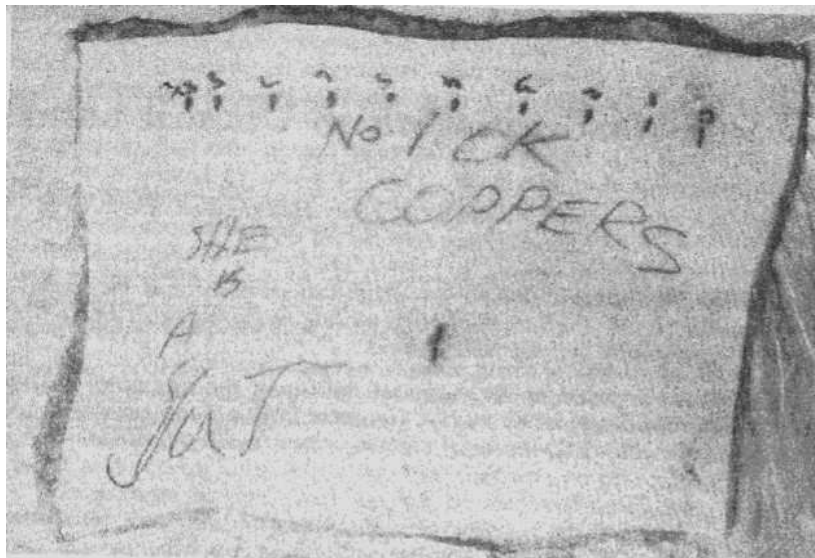 No ICK
COPPERS
SHE
IS
A
SluT